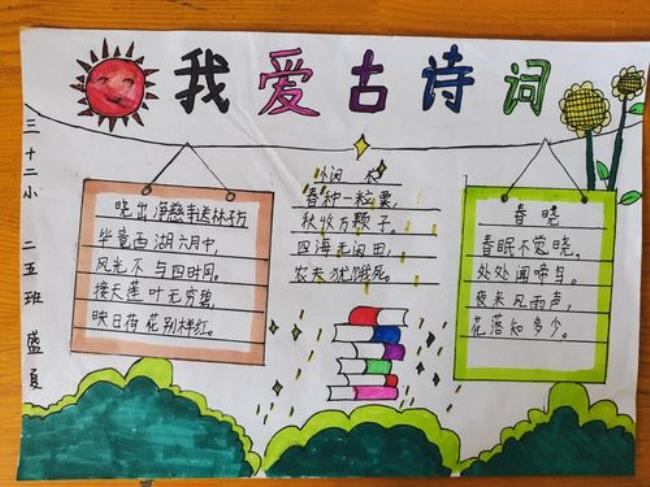 我爱古诗词
三十二小 二五班 盛夏
晓出净慈寺送林子方
毕竟西湖六月中,
风光不与四时同。
接天莲叶无穷碧,
映日荷花别样红。
悯农
春种一粒粟,
秋收万颗子。
四海无闲田,
农夫犹饿死。
春晓
春眠不觉晓,
处处闻啼鸟。
夜来风雨声,
花落知多少。